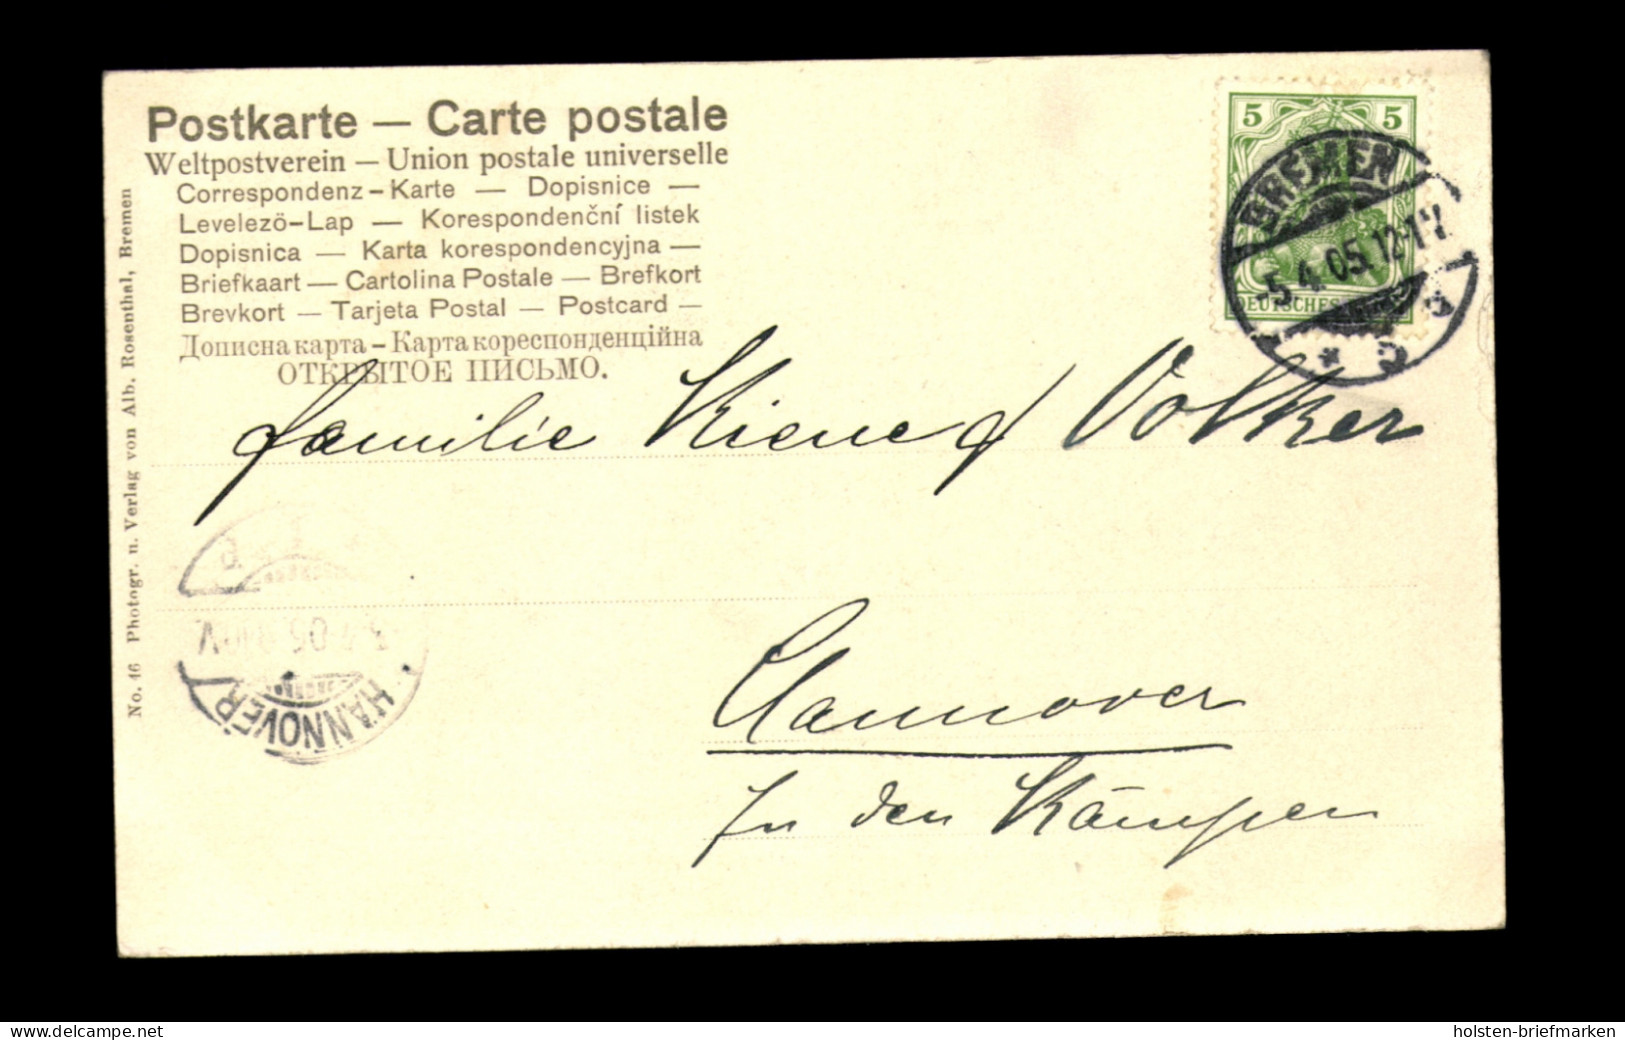 Postkarte — Carte postale
Weltpostverein — Union postale universelle
Correspondenz-Karte — Dopisnice —
Levelezö-Lap — Korespondenční listek
Dopisnica — Karta korespondencyjna —
Briefkaart — Cartolina Postale — Brefkort
Brevkort — Tarjeta Postal — Postcard —
Дописна карта – Карта кореспонденційна
ОТКРЫТОЕ ПИСЬМО.
No. 46 Photogr. u. Verlag von Alb. Rosenthal, Bremen
5 5
DEUTSCHES
BREMEN
5.4.05.12-1V.
* C
Familie Kiene Volker
Hannover
In den Kämpen
HANNOVER
delcampe.net
holsten-briefmarken